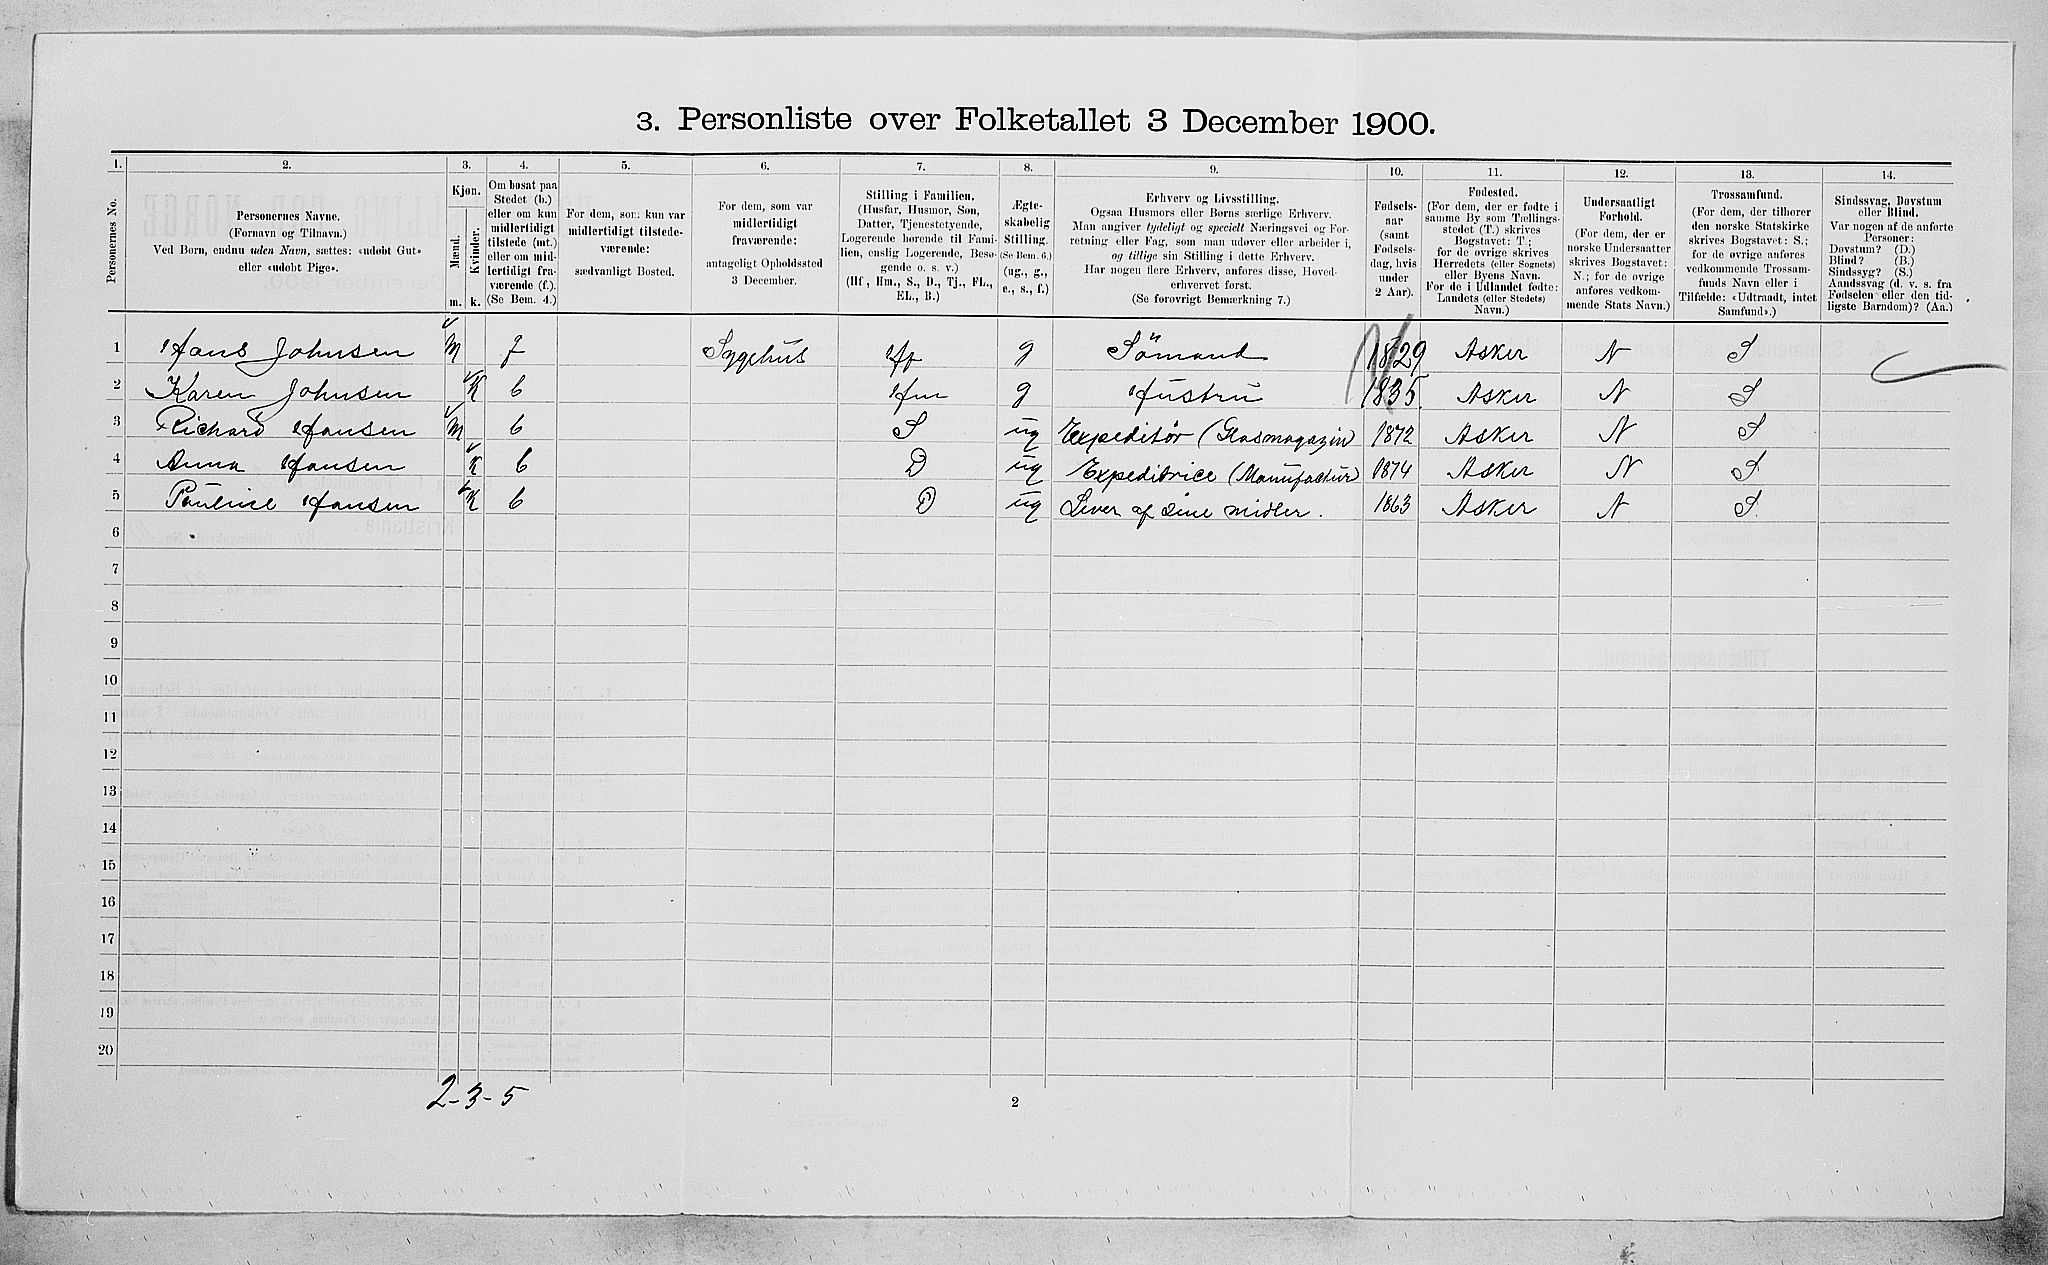 3. Personliste over Folketallet 3 December 1900.
1. 2. 3. 4. 5. 6. 7. 8. 9. 10. 11. 12. 13. 14.
Personernes No.
Personernes Navne.
(Fornavn og Tilnavn.)
Ved Børn, endnu uden Navn, sættes: «udøbt Gut»
eller «udøbt Pige».
Kjøn.
Mænd.
Kvinder.
m. k.
Om bosat paa
Stedet (b.)
eller om kun
midlertidigt
tilstede (mt.)
eller om mid-
lertidigt fra-
værende (f.).
(Se Bem. 4.)
For dem, som kun var
midlertidigt tilstede-
værende:
sædvanligt Bosted.
For dem, som var
midlertidigt
fraværende:
antageligt Opholdssted
3 December.
Stilling i Familien.
(Husfar, Husmor, Søn,
Datter, Tjenestetyende,
Logerende hørende til Fami-
lien, enslig Logerende, Besø-
gende o. s. v.)
(Hf., Hm., S., D., Tj., FL.,
EL., B.)
Ægte-
skabelig
Stilling.
(Se Bem. 6.)
(ug., g.,
e., s., f.)
Erhverv og Livsstilling.
Ogsaa Husmors eller Børns særlige Erhverv.
Man angiver tydeligt og specielt Næringsvei og For-
retning eller Fag, som man udøver eller arbeider i,
og tillige sin Stilling i dette Erhverv.
Har nogen flere Erhverv, anføres disse, Hoved-
erhvervet først.
(Se forøvrigt Bemærkning 7.)
Fødsels-
aar
(samt
Fødsels-
dag, hvis
under
2 Aar).
Fødested.
(For dem, der er fødte i
samme By som Tællings-
stedet (T.) skrives
Bogstavet: T.;
for de øvrige skrives
Herredets (eller Sognets)
eller Byens Navn.
For de i Udlandet fødte:
Landets (eller Stedets)
Navn.)
Undersaatligt
Forhold.
(For dem, der er
norske Undersaatter
skrives Bogstavet:
N.; for de øvrige
anføres vedkom-
mende Stats Navn.)
Trossamfund.
(For dem, der tilhører
den norske Statskirke
skrives Bogstavet: S.;
for de øvrige anføres
vedkommende Trossam-
funds Navn eller i
Tilfælde: «Udtraadt, intet
Samfund».)
Sindssvag, Døvstum
eller Blind.
Var nogen af de anførte
Personer:
Døvstum? (D.)
Blind? (B.)
Sindssyg? (S.)
Aandssvag (d. v. s. fra
Fødselen eller den tid-
ligste Barndom)? (Aa.)
1 Hans Johnsen M f Sygehus Hf g Sömand 1829 Asker N S
2 Karen Johnsen K b Hm g Hustru 1835. Asker N S
3 Richard Hansen M b S ug Expeditør (Glasmagazin) 1872 Asker N S
4 Anna Hansen K b D ug Expeditrice (Manufaktur) 1874 Asker N S
5 Pauline Hansen K b D ug Lever af sine midler. 1863 Asker N S.
6
7
8
9
10
11
12
13
14
15
16
17
18
19
20
2-3-5
2